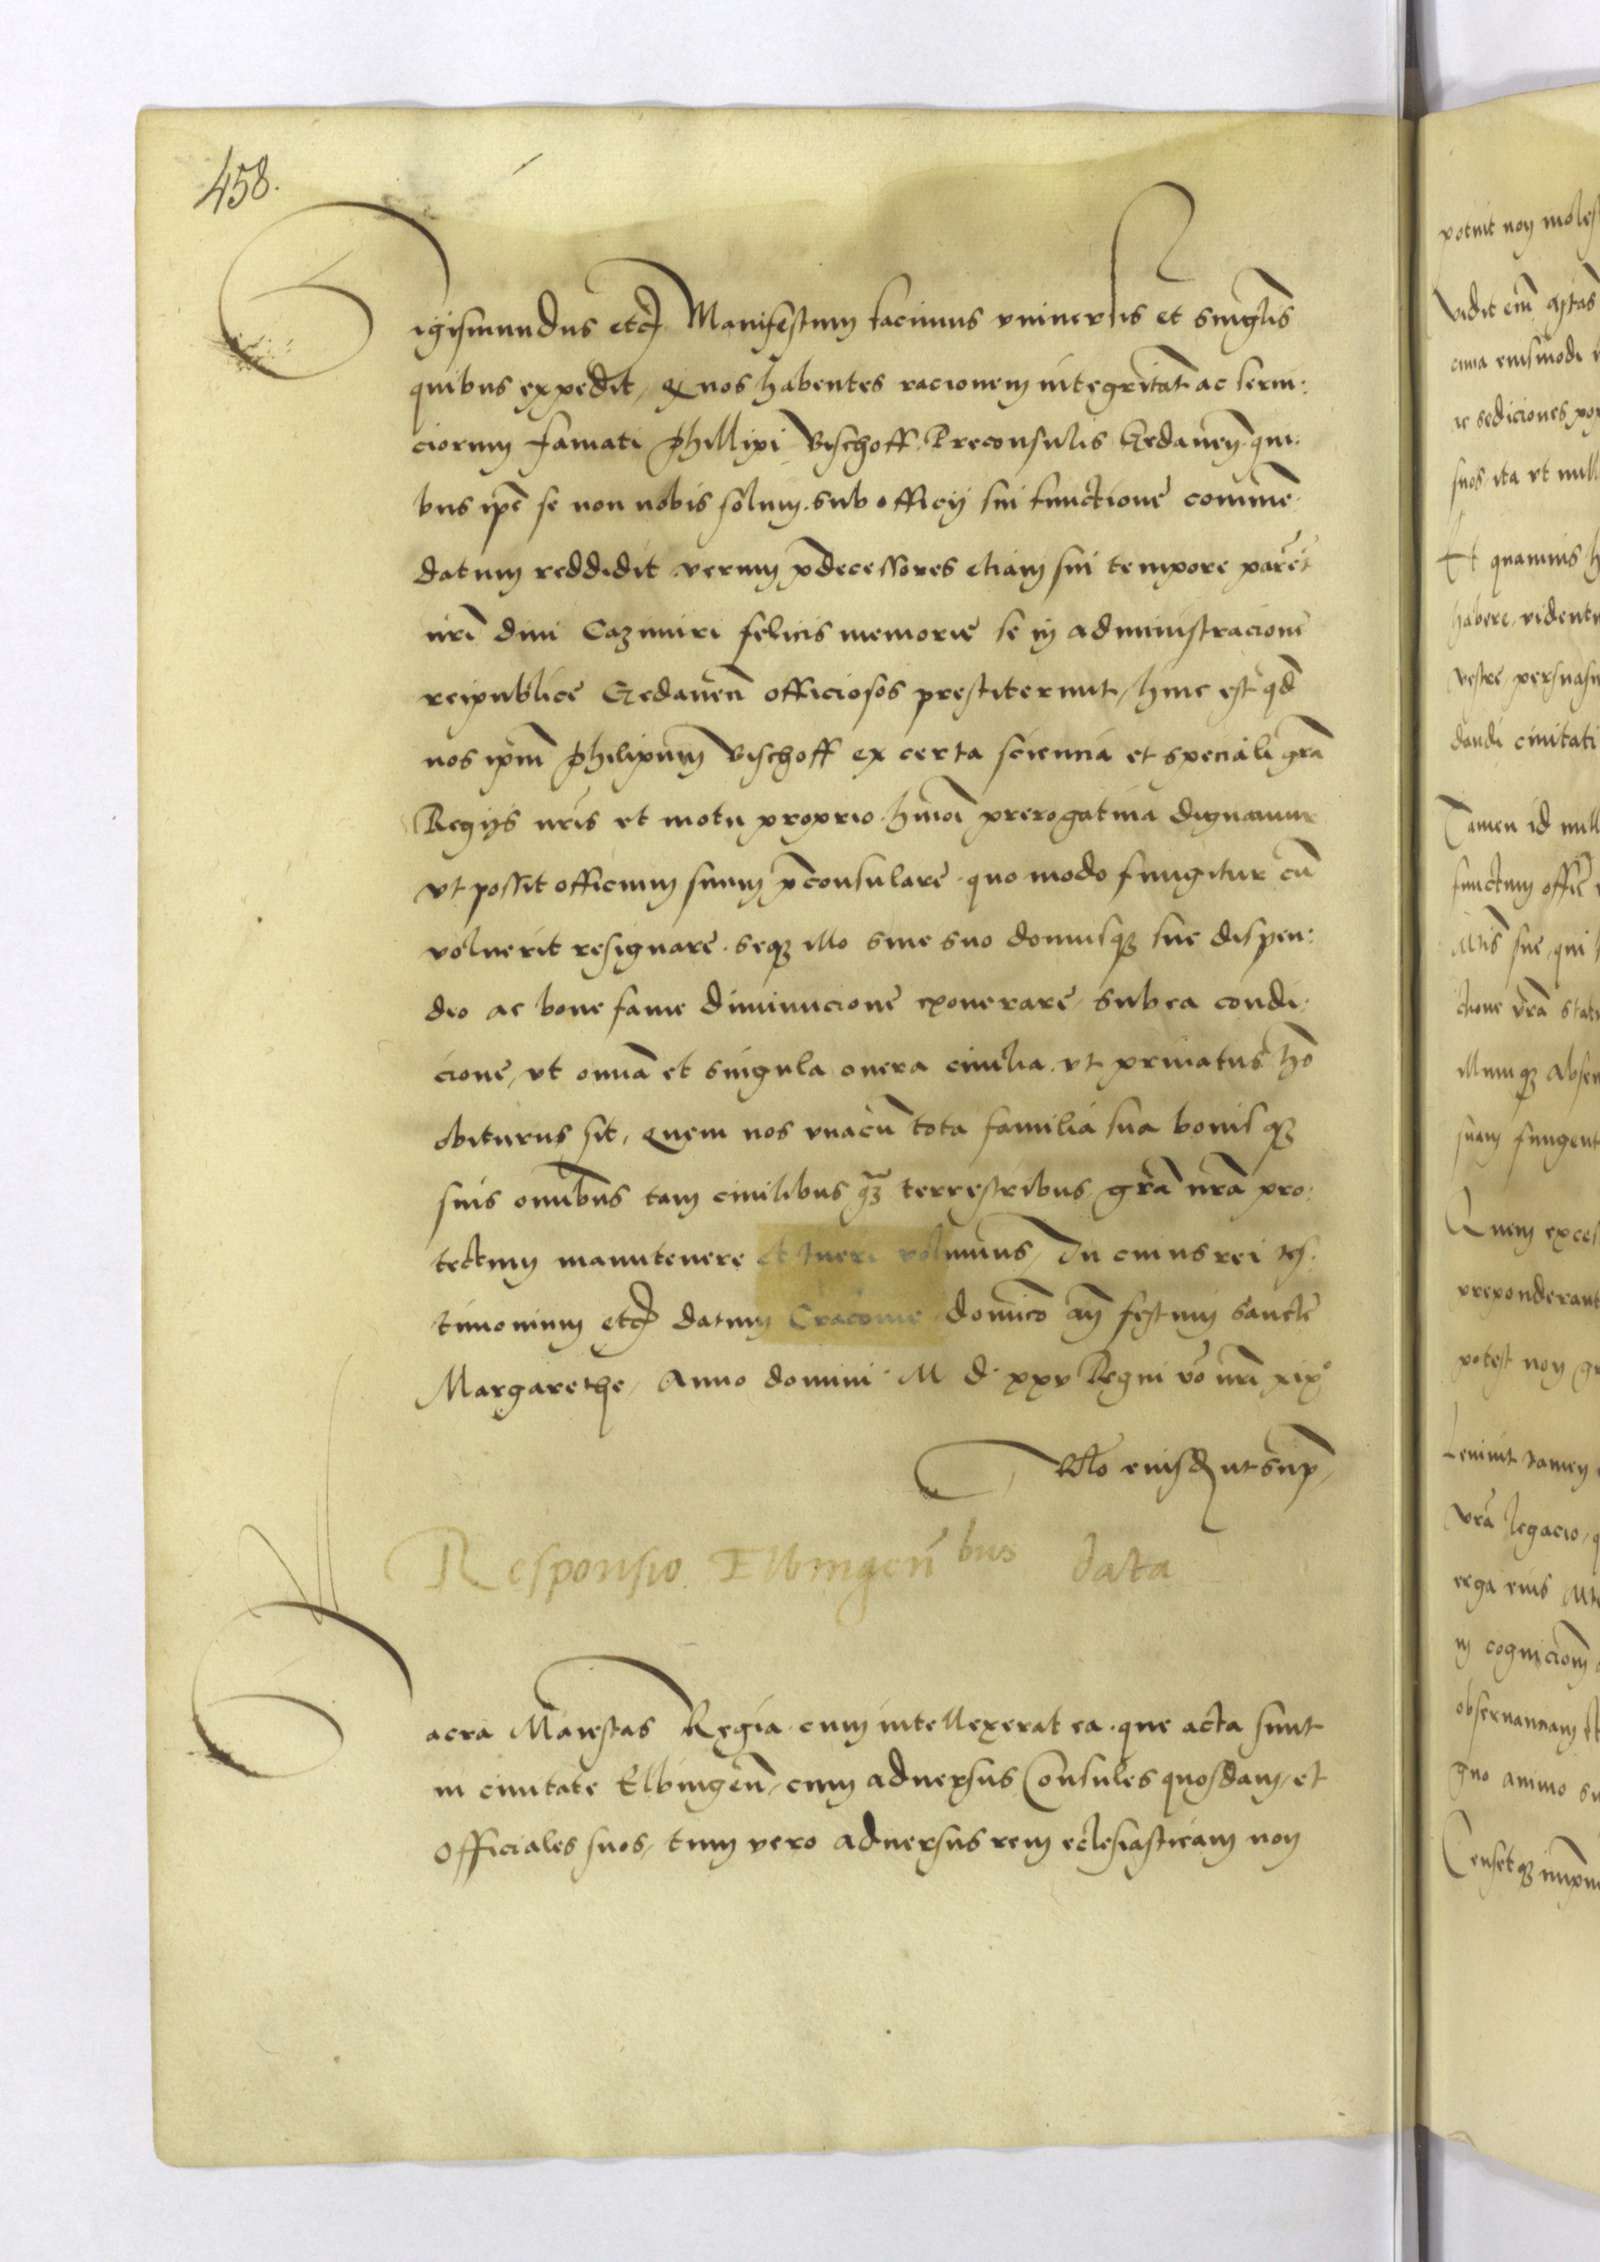 458.
Sigismundus etc Manifestum facimus vniuersis et singlis
quibus expedit, q nos habentes racionem integritat ac serui:
ciorum famati Phillipi Bischoff Preconsulis Gedanen qui:
bus ipe se non nobis solum sub officij sui functione comme
datum reddidit verum pdecessores etiam sui tempore paret
nri diui Cazimiri felicis memorie se in administracione
reipublice Gedanen officiosos prestiterunt, hinc est qd
nos ipm Philipum Bischoff ex certa sciencia et speciali gra
Regijs nris et motu proprio hmoi prerogatiua dignamur
vt possit officium suum pconsulare quo modo fungitur cu
voluerit resignare seq illo sine suo domusq sue dispen:
dio ac bone fame diminucione exonerare sub ea condi:
cione, vt omia et singula onera ciuilia vt priuatus ho
obiturus sit, quem nos vnacu tota familia sua bonisq
suis omibus tam ciuilibus q terrestribus gra nra pro:
tectum manutenere et tueri volumus, In cuius rei tes
timonium etc datum Cracouie domico an festum sancte
Margarethe, Anno domini M d xxv Regni vo nri xix
Rlo eiusd ut sup
Responsio Elbingen bus data
Sacra Maiestas Regia cum intellexerat ea que acta sunt
in ciuitate Elbingen, cum aduersus Consules quosdam, et
officiales suos, tum vero aduersus rem eclesiasticam non
potuit non moles
vidit em
cuia eiusmodi
re sediciones
suos ita vt null
Et quamuis h
habere videntu
vestre persuasi
dandi ciuitati
Tamen id null
functum offic
Mtis sue, qui
ctione vra stat
illumq absen
suam fungent
Quem exces
preponderant
potest non gr
Leniuit tamen
vra legacio, q
erga eius Mt
in cogniciom
obseruanciam et
quo animo su
Censetq